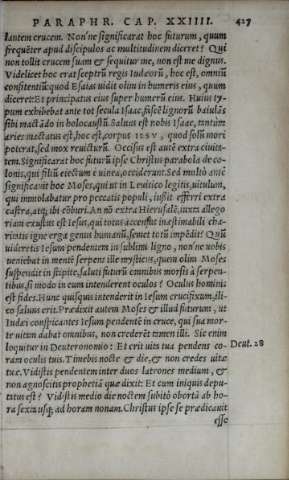 PARAPHR. CAP. XXIIII. 427
lantem crucem. Non'ne significarat hoc futurum, quum
frequẽter apud discipulos ac multitudinem diceret? Qui
non tollit crucem suam & sequitur me, non est me dignus.
Videlicet hoc erat sceptrũ regis Iudæorũ, hoc est, omniũ
confitentiũ quod Esaias uidit olim in humeris eius, quum
diceret: Et principatus eius super humerũ eius. Huius ty-
pum exhibebat ante tot secula Isaac, fascẽ lignorũ baiulãs
sibi mactãdo in holocaustũ. Saluus est nobis Isaac, tantùm
aries mactatus est, hoc est, corpus IESV, quod solũ mori
poterat, sed mox reuicturũ. Occisus est autẽ extra ciuita-
tem. Significarat hoc futurũ ipse Christus parabola de co-
lonis, qui filiũ eiectum è uinea, occiderunt. Sed multò antè
significauit hoc Moses, qui ut in Leuitico legitis, uitulum,
qui immolabatur pro peccatis populi, iussit efferri extra
castra, atq; ibi cõburi. An nõ extra Hierusalẽ, iuxta allego
riam exustus est Iesus, qui totus accensus inæstimabili cha-
ritatis igne ergà genus humanũ, semet totũ impẽdit? Quũ
uideretis Iesum pendentem in sublimi ligno, non'ne uobis
ueniebat in mentẽ serpens ille mysticus, quem olim Moses
suspendit in stipite, saluti futurũ omnibus morsis à serpen-
tibus, si modò in eum intenderent oculos? Oculus hominis
est fides. Hunc quisquis intenderit in Iesum crucifixum, ili-
co saluus erit. Prædixit autem Moses & illud futurum, ut
Iudæi conspicantes Iesum pendentẽ in cruce, qui sua mor-
te uitam dabat omnibus, non crederẽt tamen illi. Sic enim
loquitur in Deuteronomio: Et erit uita tua pendens co- Deut. 28
ram oculis tuis. Timebis nocte & die, & non credes uitæ
tuæ. Vidistis pendentem inter duos latrones medium, &
non agnoscitis prophetiã quæ dixit: Et cum iniquis depu-
tatus est? Vidistis medio die noctem subitò obortã ab ho-
ra sexta usq; ad horam nonam. Christus ipse se prædicauit
esse